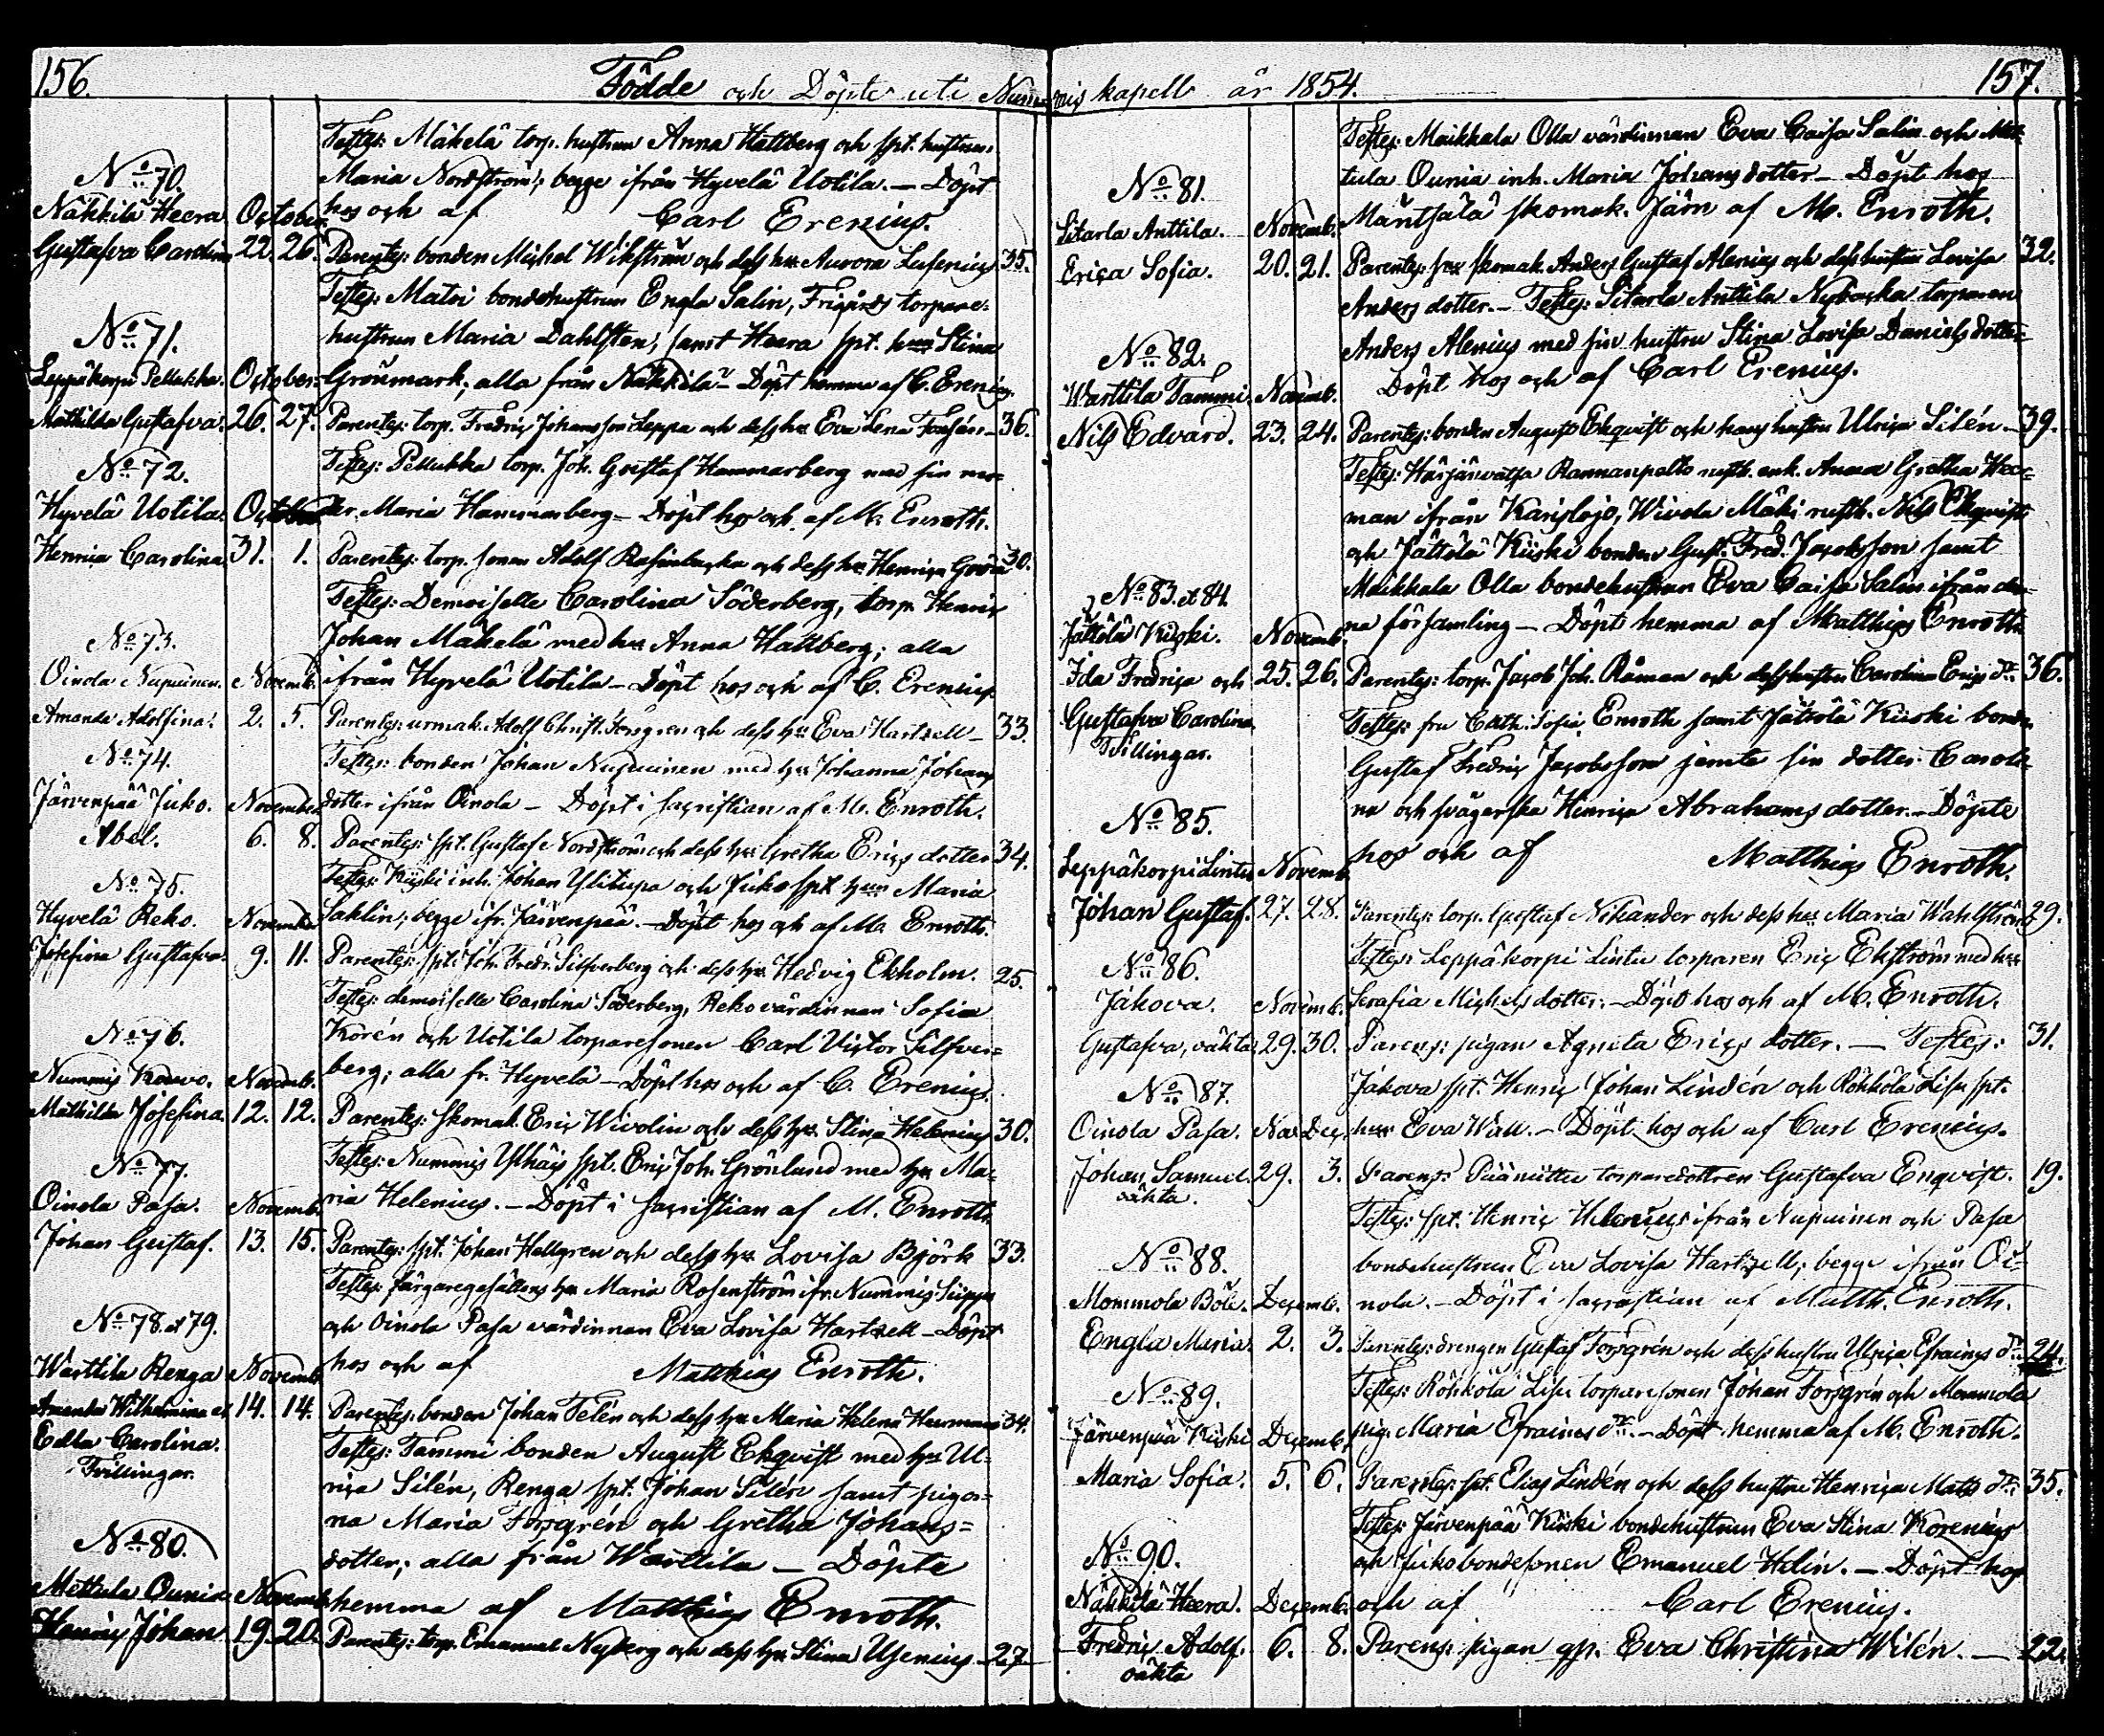 156.
Födde och Döpte uti Nummis kapell år 1854.
157.
Testes: Mäkelä torp. hustrun Anna Hattberg och spt. hustrun
No 70.
Maria Nordström; begge ifrån Hyvelä Uotila. — Döpt
Näkkilä Heera October hos och af Carl Erenius.
Gustafva Carolina 22. 26. Parentes: bonden Michel Wikström och dess h:u Aurora Lusenius 35.
Testes: Matoi bondehustrun Engla Salin, Frigårds torpare-
No 71.
hustrun Maria Dahlsten, samt Heera spt. h:un Stina
Leppäkorpi Pellukka. October. Grönmark; alla från Näkkilä — Döpt hemma af C. Erenius.
Mathilda Gustafva. 26. 27. Parentes: torp. Fredric Johansson Leppä och dess h:u Eva Lena 36.
No 72.
Testes: Pellukka torp. Joh. Gustaf Hammarberg med sin mo-
Hyvelä Uotila. October der Maria Hammarberg — Döpt hos och af M. Enroth.
Henrica Carolina 31. 1. Parentes: torp. sonen Adolf och dess h:u Henrica 30.
Testes: Demoiselle Carolina Söderberg, torp. Henric
No 73.
Johan Mäkelä med h:u Anna Hattberg; alla
Oinola Nupuinen. Novemb. ifrån Hyvelä Uotila — Döpt hos och af C. Erenius.
Amanda Adolfina. 2. 5. Parentes: urmak. Adolf Christ. Forsgren och dess h:u Eva Hartzell — 33.
No 74.
Testes: bonden Johan Nupuinen med h:u Johanna Johans
Järvenpää Juko. November dotter ifrån Oinola — Döpt i sacristian af M. Enroth.
Abel. 6. 8. Parentes: spt. Gustaf Nordström och dess h:u Gretha Erics dotter 34.
No 75.
Testes: Kiiski inh. Johan Ylitupa och Juko spt. h:un Maria
Hyvelä Reko. November Saklin; begge ifr. Järvenpää. — Döpt hos och af M. Enroth.
Josefina Gustafva. 9. 11. Parentes: spt. Joh. Fredr. Silfverberg och dess h:u Hedvig Ekholm. 25.
Testes: demoiselle Carolina Söderberg, Reko värdinnan Sofia
No 76.
Korén och Uotila torparesonen Carl Victor Silfver-
Nummis Novemb. berg; alla fr. Hyvelä — Döpt hos och af C. Erenius.
Mathilda Josefina. 12. 12. Parentes: skomak. Eric Wivolin och dess h:u Stina Helenius 30.
No 77.
Testes: Nummis Ylhäis spt. Eric Joh. Grönlund med h:u Ma-
Oinola Pasa. Novemb. ria Helenius. — Döpt i sacristian af M. Enroth.
Johan Gustaf. 13. 15. Parentes: spt. Johan Hellgren och dess h:u Lovisa Björk 33.
Testes: färgaregesällens h:u Maria Rosenström ifr. Nummis
No 78. et 79.
och Oinola Pasa värdinnan Eva Lovisa Hartzell — Döpt
Warttila Renga Novemb. hos och af Matthias Enroth.
Amanda Wilhelmina et 14. 14. Parentes: bonden Johan Telén och dess h:u Maria Helena Heurman 34.
Edla Carolina. Testes: Tammi bonden August Ekqvist med h:u Ul-
Tvillingar.
rica Silén, Renga spt. Johan Silén samt pigor-
na Maria Forsgrén och Gretha Johans-
No 80.
dotter; alla från Warttila — Döpte
Mettula Ounia Novemb. hemma af Matthias Enroth.
Henric Johan 19. 20. Parentes: torp. Emanuel Nyberg och dess h:u Stina Usenius 27
Testes: Maikkala Olla värdinnan Eva Caisa Salin och Met-
No 81.
tula Ounia inh. Maria Johans dotter — Döpt hos
Sitarla Anttila. Novemb. Mäntsälä skomak. Järn af M. Enroth.
Erica Sofia. 20. 21. Parentes: skomak. Anders Gustaf Alenius och dess hustru Lovisa 32.
Anders dotter. — Testes: Sitarla Anttila Nybacka torparen
No 82.
Anders Alenius med sin hustru Stina Lovisa Daniels dotter
Döpt hos och af Carl Erenius.
Warttila Tammi. Novemb.
Nils Edvard. 23. 24. Parentes: bonden August Ekqvist och hans hustru Ulrica Silén. 39.
Testes: Härjänvatsa Rannanpelto rusth. enk. Anna Gretha Heur-
man ifrån Karislojo, Wivola Mäki rusth. Nils Ekqvist
och Jättölä Kiiski bonden Gust. Fred. Jacobsson samt
No 83. et 84.
Maikkala Olla bondehustrun Eva Caisa Salin ifrån den-
Jättölä Kiiski. Novemb. na församling — Döpt hemma af Matthias Enroth.
Ida Fredrica och 25. 26. Parentes: torp. Jacob Joh. Råman och dess hustru Carolina Erics d:r 36.
Gustafva Carolina. Testes: fru Cath. Sofia Enroth samt Jättölä Kiiski bonden
Tvillingar.
Gustaf Fredric Jacobsson jemte sin dotter Caroli-
No 85.
na och svägerska Henrica Abrahams dotter. — Döpte
Leppäkorpi Lintu Novemb. hos och af Matthias Enroth.
Johan Gustaf. 27. 28. Parentes: torp. Gustaf Nikander och dess h:u Maria Wahlström 29.
No 86.
Testes: Leppäkorpi Lintu torparen Eric Ekström med h:u
Jakova. Novemb. Serafia Michels dotter. — Döpt hos och af M. Enroth.
Gustafva, oäkta. 29. 30. Parens: pigan Agneta Erics dotter. — Testes: 31.
No 87.
Jakova spt. Henric Johan Lindén och Röhkölä Lisu spt.
Oinola Pasa. Nov. Dec. h:un Eva Wall. — Döpt hos och af Carl Erenius.
Johan Samuel. 29. 3. Parens: torparedottren Gustafva Enqvist. 19.
oäkta.
Testes: spt. Henric Helenius ifrån Nupuinen och Pasa
No 88.
bondehustrun Eva Lovisa Hartzell; begge ifrån Oi-
Mommola Böle. Decemb. nola. — Döpt i sacrastian af Matth. Enroth.
Engla Maria. 2. 3. Parentes: drengen Gustaf Forsgrén och dess hustru Ulrica Efraims d:r 24.
No 89.
Testes: Röhkölä Lisu torparesonen Johan Forsgrén och Mommola
Järvenpää Kiiski Decemb. pig. Maria Efraims d:r — Döpt hemma af M. Enroth.
Maria Sofia. 5. 6. Parentes: spt. Elias Lindén och dess hustru Henrica Matts d:r 35.
Testes: Järvenpää Kiiski bondehustrun Eva Stina Korenius
No 90.
och Juko bondesonen Emanuel Helin. — Döpt hos
Näkkilä Heera. Decemb. och af Carl Erenius.
Fredric Adolf. 6. 8. Parens: pigan Eva Christina Wilén. — 22.
oäkta